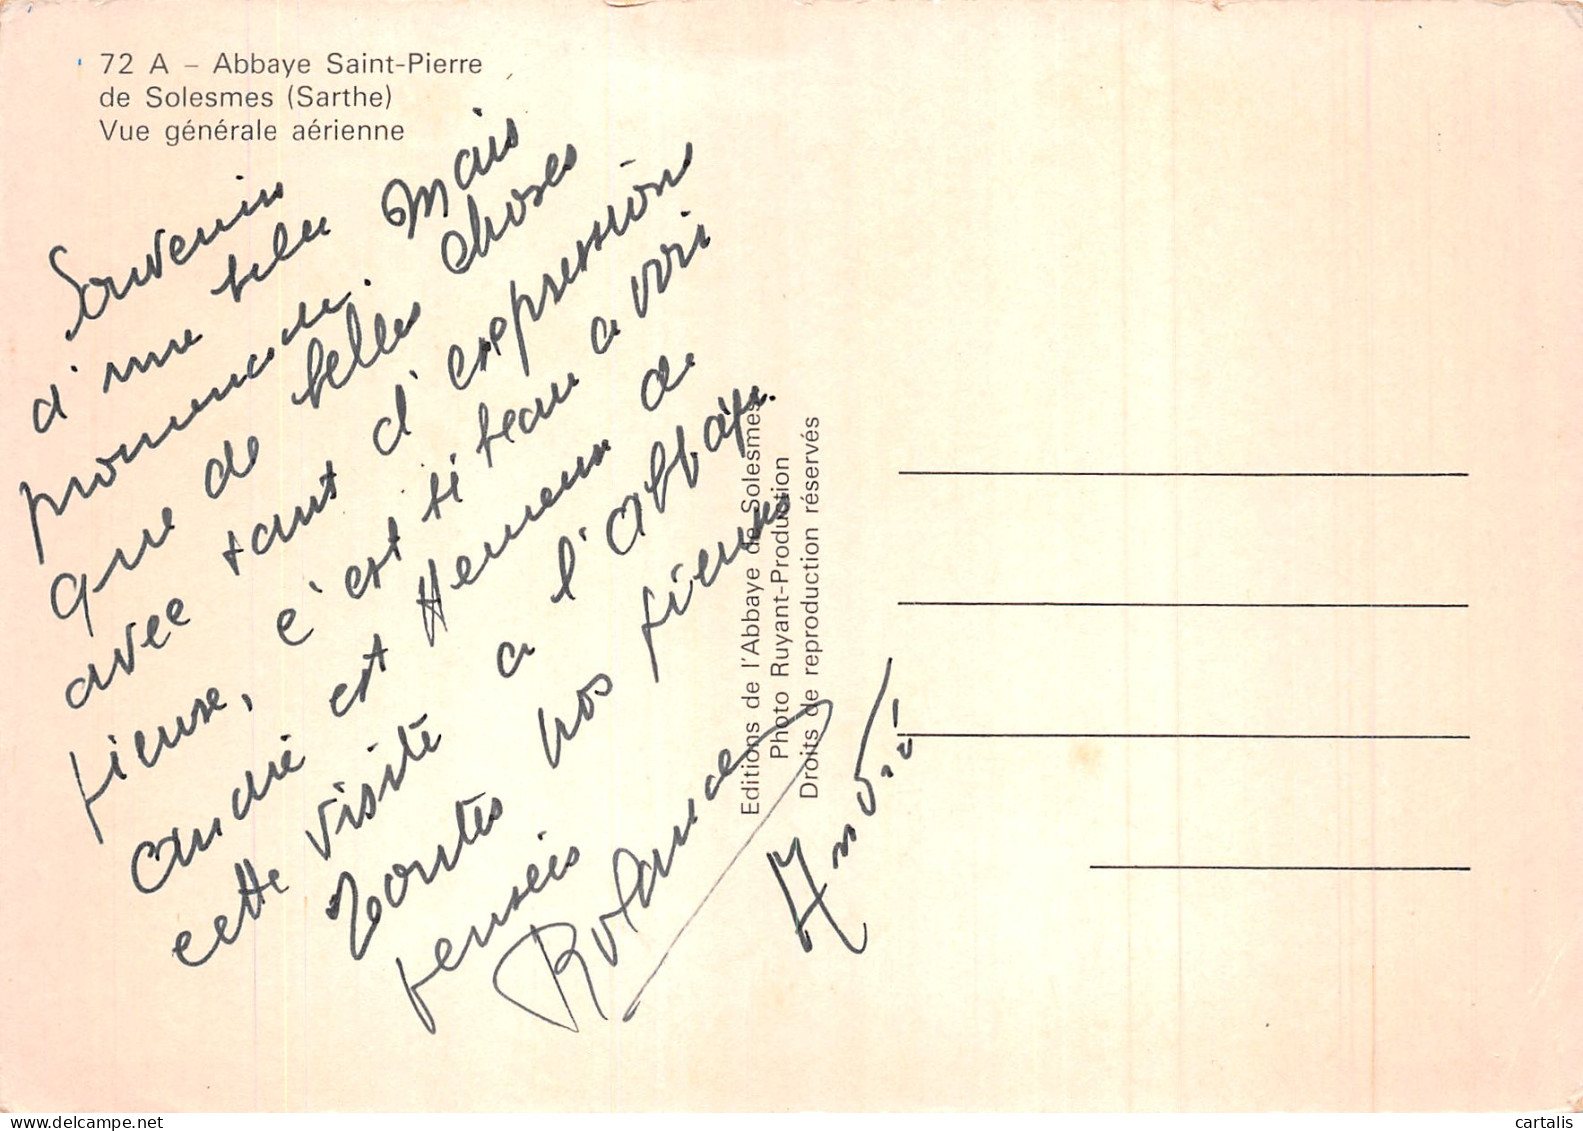 72 A – Abbaye Saint-Pierre
de Solesmes (Sarthe)
Vue générale aérienne
Souvenir
d'une belle
promenade. Mais
que de belles choses
avec tant d'expression
pieuse, c'est si beau a voir
André est Heureux de
cette visite a l'Abbaye.
Toutes nos pieuses
pensées
Rolande
André
Editions de l'Abbaye de Solesmes
Photo Ruyant-Production
Droits de reproduction réservés
delcampe.net
cartalis